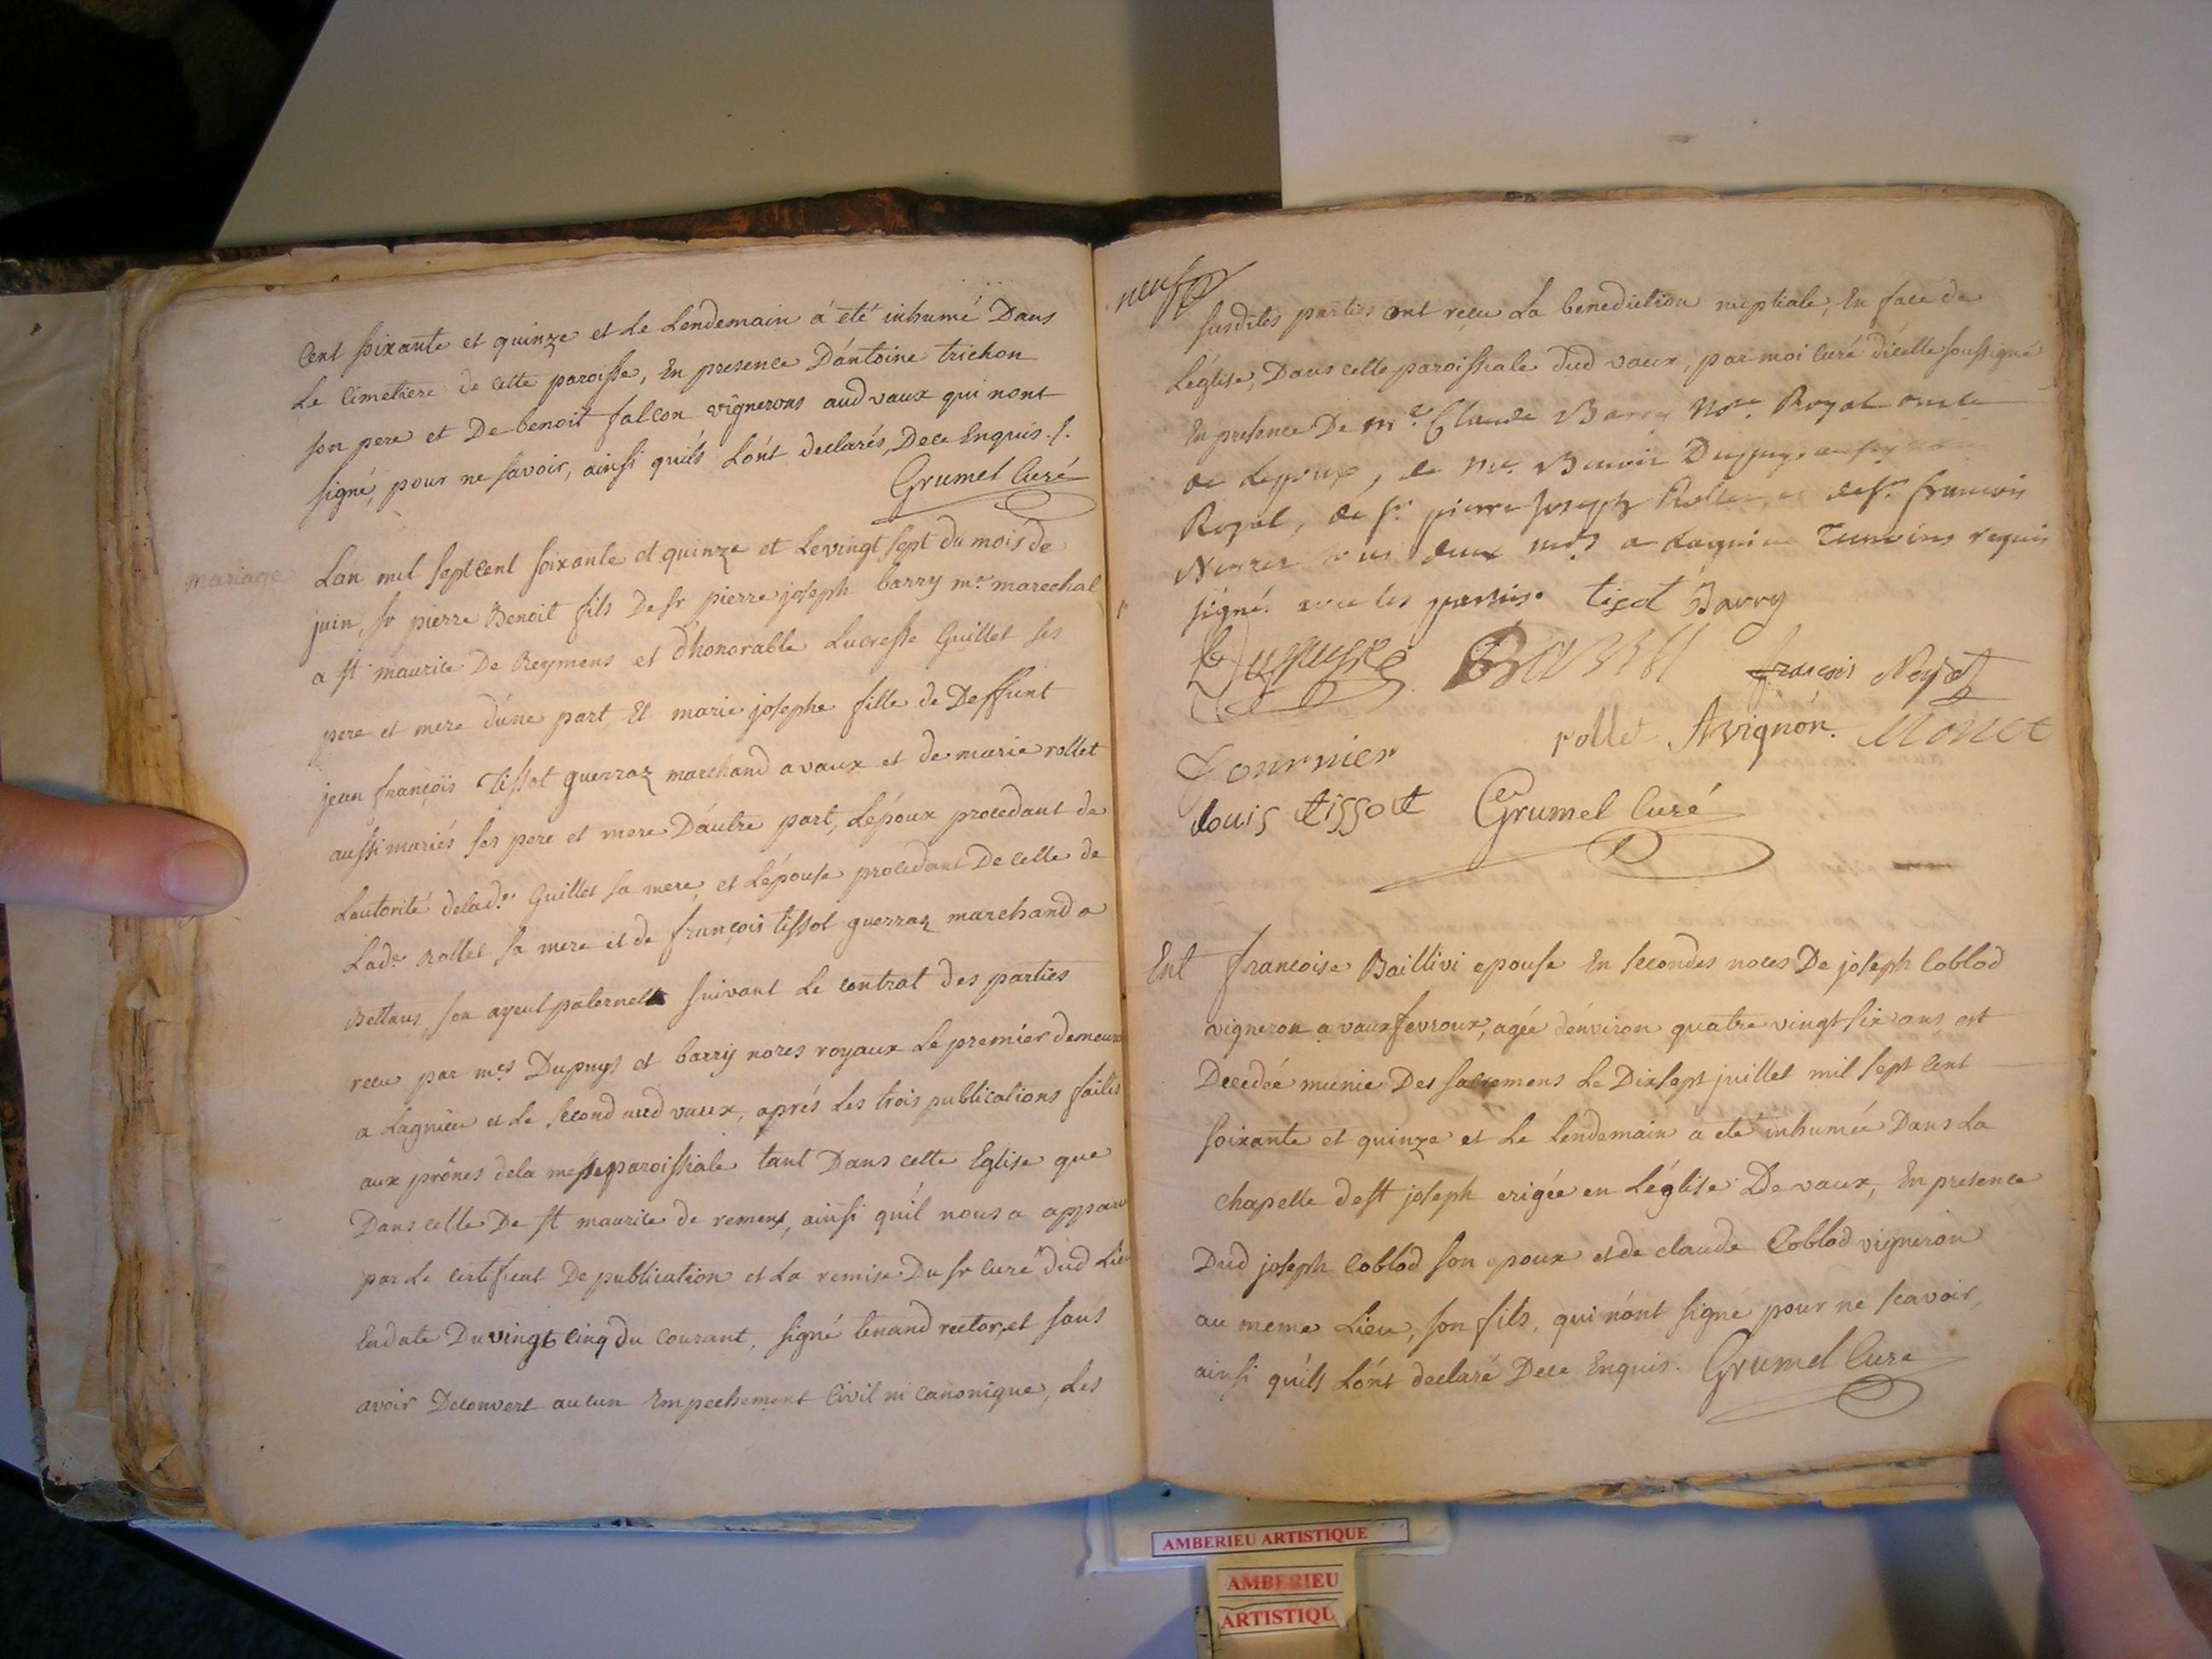 Cent soixante et quinze et Le Lendemain a été inhumé Dans
Le Cimetiere de cette paroisse, En presence D'antoine trichon
son pere et De benoit falcon vignerons aud vaux qui nont
signé, pour ne savoir, ainsi quils L'ont declarés, Dece Enquis ./.
Grumel Curé
mariage
Lan mil sept cent soixante et quinze et Le vingt sept du mois de
juin, sr pierre Benoit fils De sr pierre joseph barry me marechal
a st maurice De Reymens et d'honorable Lucresse Guillet ses
pere et mere d'une part, Et marie josephe fille de Deffunt
jean françois Tissot guerraz marchand a vaux et de marie rollet
aussi mariés ses pere et mere D'autre part, L'époux procedant de
L'autorité de lade Guillet sa mere, et L'épouse procedant De celle de
Lade Rollet sa mere et de françois tissot guerraz marchand a
Bettans, son ayeul paternel suivant Le contrat des parties
recu par mes Dupuys et barry nores royaux Le premier demeurant
a Lagnieu et Le second aud vaux, aprés Les trois publications faites
aux prônes dela messe paroissiale tant Dans cette Eglise que
Dans celle De st maurice de remens, ainsi qu'il nous a apparu
par Le certificat De publication et La remise Du sr curé dud Lieu
En date Du vingt cinq du courant, signé tenand rector, et sans
avoir Decouvert aucun Empechement Civil ni canonique, Les
neuf
susdites parties ont reçu La benediction nuptiale, En face de
L'église, Dans celle paroissiale dud vaux, par moi curé d'icelle soussigné
En presence De me Claude Barry Nore Royal oncle
de Lepoux, de me. Benoit Dupuys
Royal, de sr pierre joseph Rollet et de sr françois
deux mds a Lagnieu Temoins requis
signé avec les parties. tisot Barry
Dupuys Barry françois Neyret
rollet Avignon. Monet
fournier
Louis tissot Grumel Curé
Ent françoise Baillivi epouse En secondes noces De joseph Coblod
vigneron a vaux fevroux, agée d'environ quatre vingt six ans est
Decedée munie Des sacremens Le Dix sept juillet mil sept cent
soixante et quinze et Le Lendemain a eté inhumée Dans La
chapelle de st joseph erigée en L'église De vaux, En presence
Dud joseph Coblod son epoux et de claude Coblod vigneron
au meme Lieu, son fils, qui n'ont signé pour ne scavoir,
ainsi qu'ils L'ont declaré Dece Enquis. Grumel Curé
AMBERIEU ARTISTIQUE
AMBERIEU
ARTISTIQU